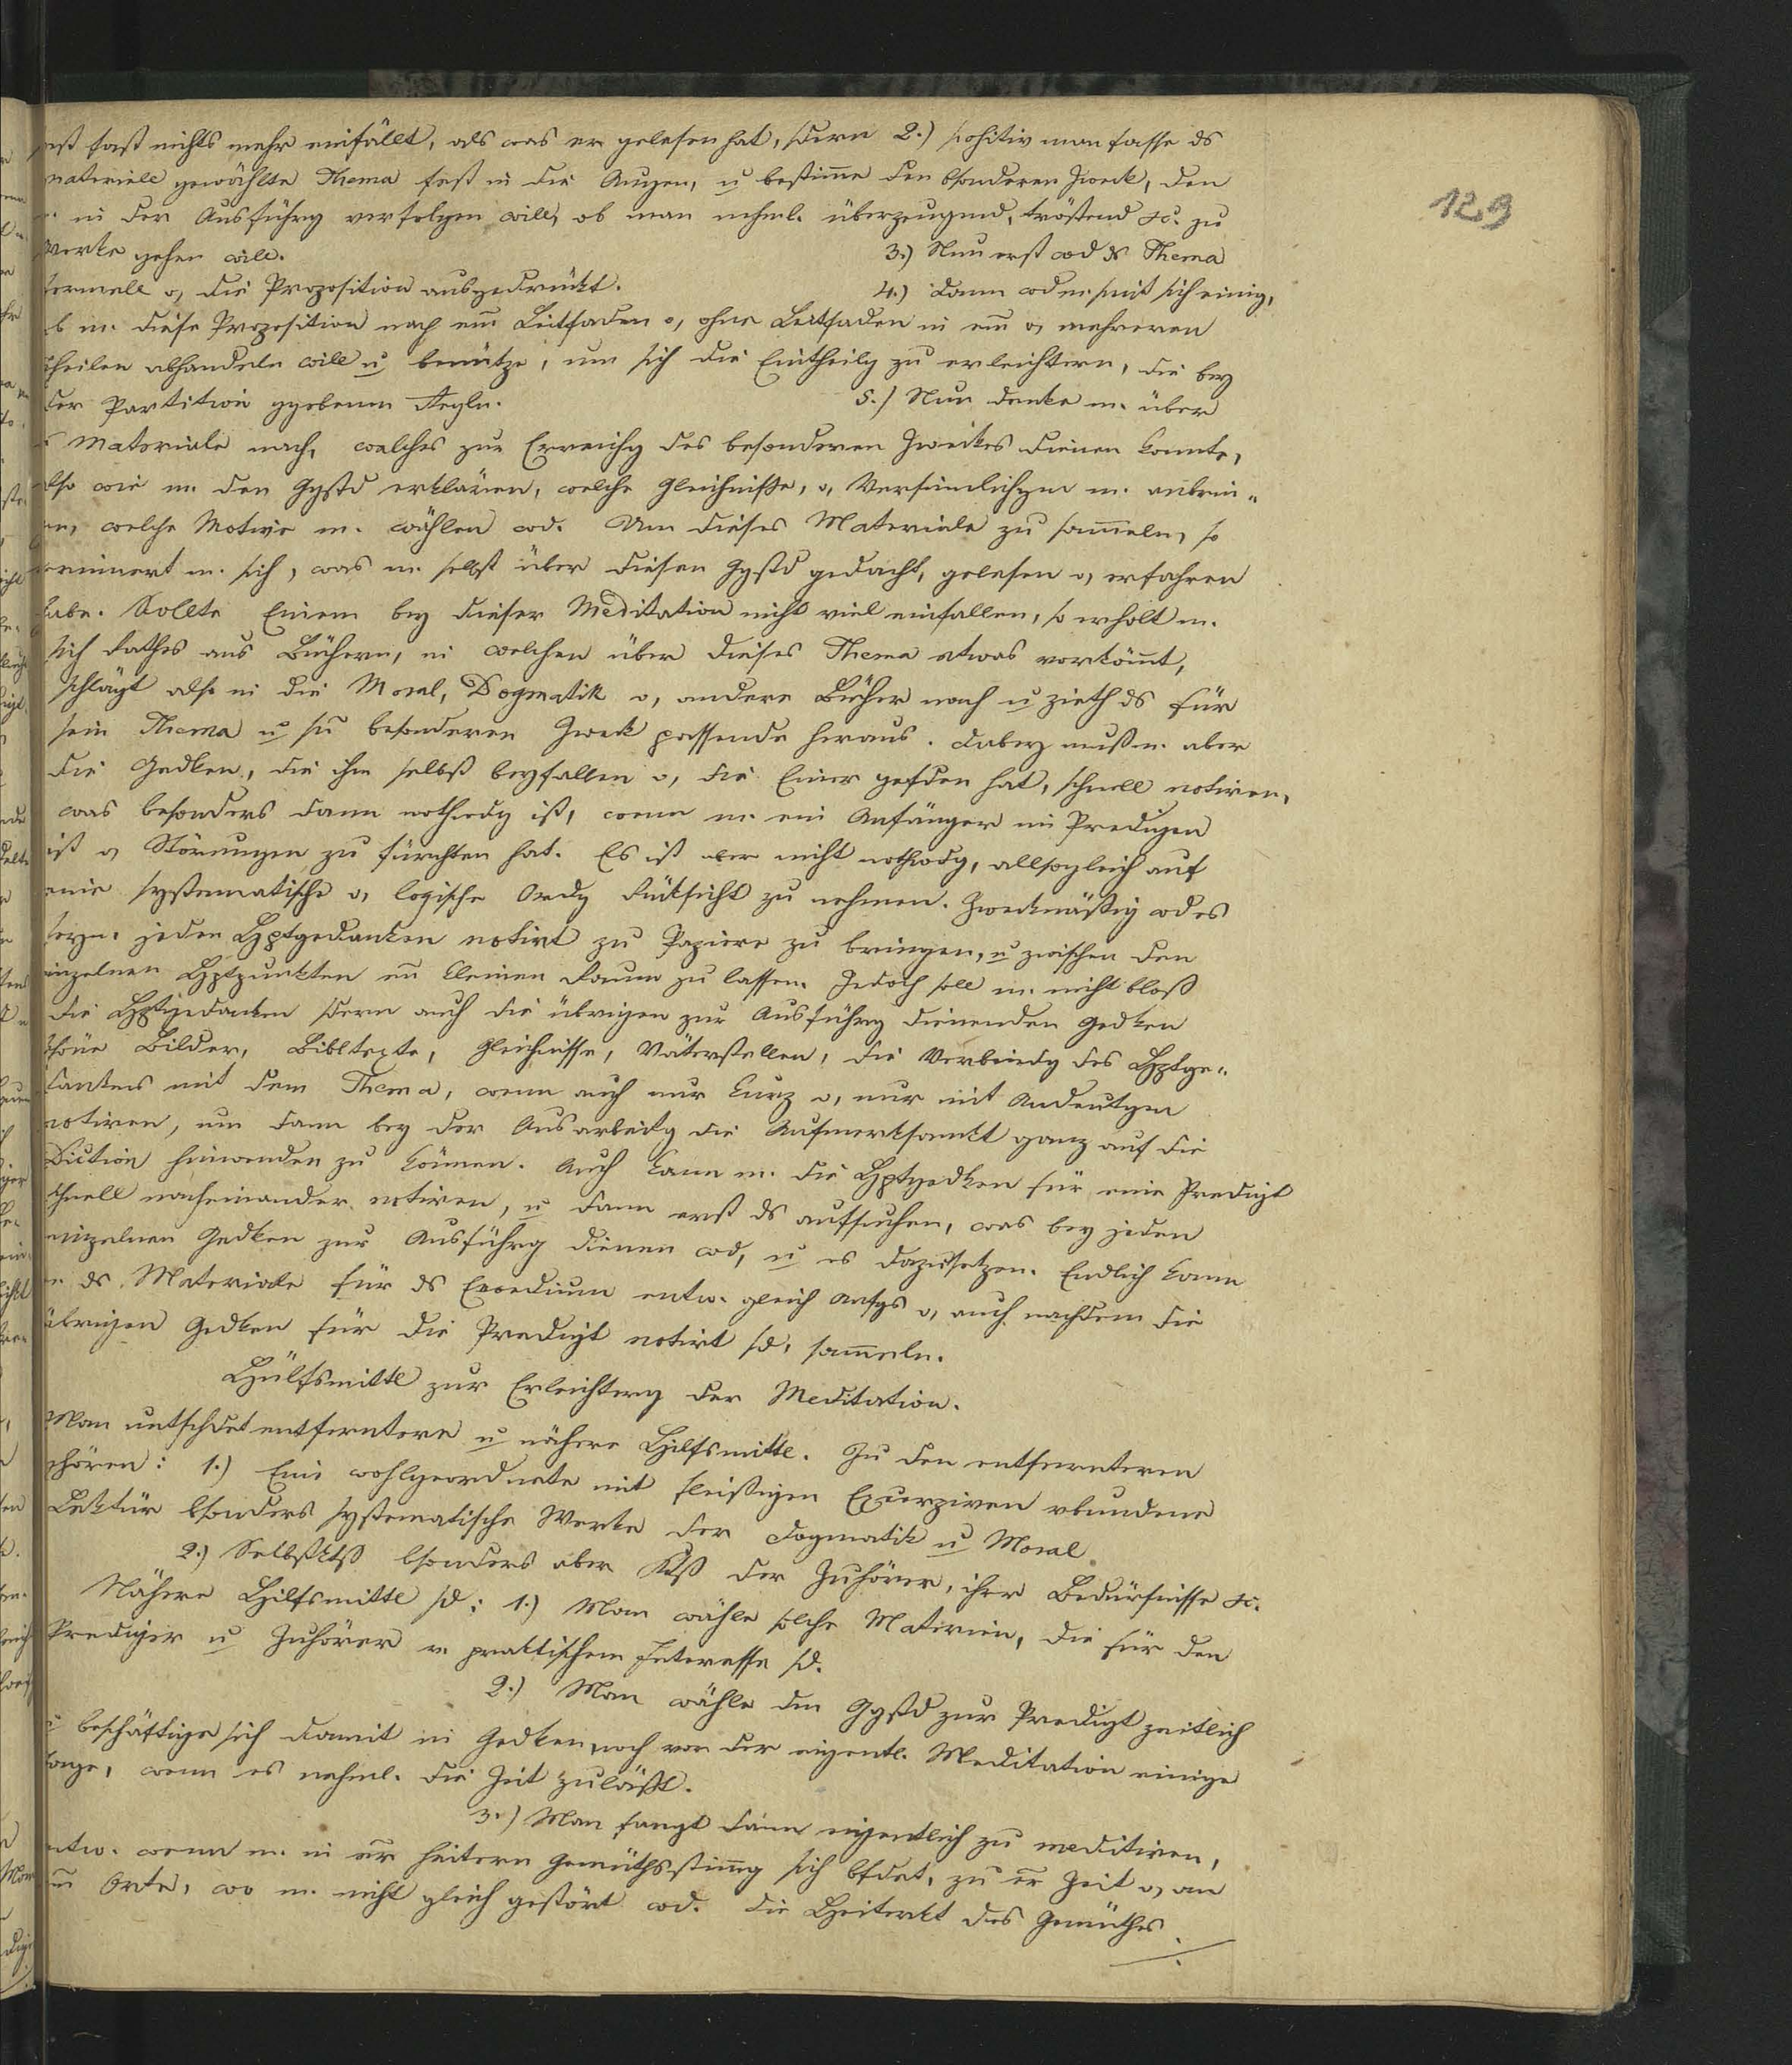 129
fast nichts mehr einfällt, als was er gelesen hat, sdern 2.) positiv man fasse ds
materiell gewählte Thema fest in die Augen, u bestime den bsonderen Zweck, den
m. in der Ausführg verfolgen will, ob man nehml. überzeugend, tröstend &c. zu
Werke gehen will. 3.) Nun erst wd ds Thema
formell o, die Proposition ausgedrückt. 4.) Dann wd m. mit sich einig,
ob m. diese Proposition nach em Leitfaden o, ohne Leitfaden in em o, mehreren
Theilen abhandeln will u benütze, um sich die Eintheilg zu erleichtern, die bey
der Partition ggebenen Regln. 5.) Nun denke m. über
ds Materiale nach, welches zur Erreichg des besonderen Zweckes dienen konnte,
also wie m. den Ggstd erklären, welche Gleichniße, o, Versinnlichgen m. anbrin-
en, welche Motive m. wählen wd. Um dieses Materiale zu sameln, so
erinnert m. sich, was m. selbst über diesen Ggstd gedacht, gelesen o, erfahren
habe. Sollte Einem bey dieser Meditation nicht viel einfallen, so erholt m.
sich Rathes aus Büchern, in welchen über dieses Thema etwas vorkömt,
schlägt also in die Moral, Dogmatik o, andere Bücher nach u zieth ds für
sein Thema u sn besonderen Zweck passende heraus. Dabey muß m. aber
die Gedken, die ihm selbst beyfallen o, die Einer gefden hat, schnell notiren,
was besonders dann nothwdg ist, wenn m. ein Anfänger im Predigen
ist o, Störungen zu fürchten hat. Es ist aber nicht nothwdg, allsogleich auf
eine systematische o, logische Ordg Rüksicht zu nehmen. Zweckmäßig wd es
seyn. jeden Hptgedanken notirt zu Papiere zu bringen, u zwischen den
einzelnen Hptpunkten en kleinen Raum zu lassen. Jedoch soll m. nicht bloß
die Hptgedanken sdern auch die übrigen zur Ausführg dienenden Gedken
schöne Bilder, Bibltexte, Gleichnisse, Väterstellen, die Verbindg des Hptge-
dankens mit dem Thema, wenn auch nur kurz o, nur mit Andeutgen
notiren, um dann bey der Ausarbeitg die Aufmerksamkt ganz auf die
Diction hinwenden zu können. Auch kann m. die Hptgedken für eine Predigt
schnell nacheinander notiren, u dann erst ds aufsuchen, was bey jeden
einzelnen Gedken zur Ausführg dienen wd, u es dazusetzen. Endlich kann
m ds Materiale für ds Exordium entw. gleich Anfgs o, auch nachdem die
übrigen Gedken für die Predigt notirt sd, sammeln.
Hülfsmittl zur Erleichterg der Meditation.
Man untschdet entferntere u nähere Hilfsmittl. Zu den entfernteren
gehören: 1.) Eine wohlgeordnete mit fleißigen Exzerpiren vbundene
Lektür bsonders systematische Werke der Dogmatik u Moral
2.) Selbstktß bsonders aber Ktß der Zuhörer, ihrer Bedürfnisse &c.
Nähere Hilfsmittl sd: 1.) Man wähle solche Materien, die für den
Prediger u Zuhörer v praktischem Interesse sd.
2.) Man wähle den Ggstd zur Predigt zeitlich
u beschäftige sich damit in Gedken, noch vor der eigentl. Meditation einige
Tage, wenn es nehml. die Zeit zuläßt.
3.) Man fangt dann eigentlich zu meditiren,
entw. wenn m. in er heitern Gemüthsstimg sich bfdet, zu er Zeit o, an
em Orte, wo m. nicht gleich gestört wd. Die Heiterkt des Gemüthes